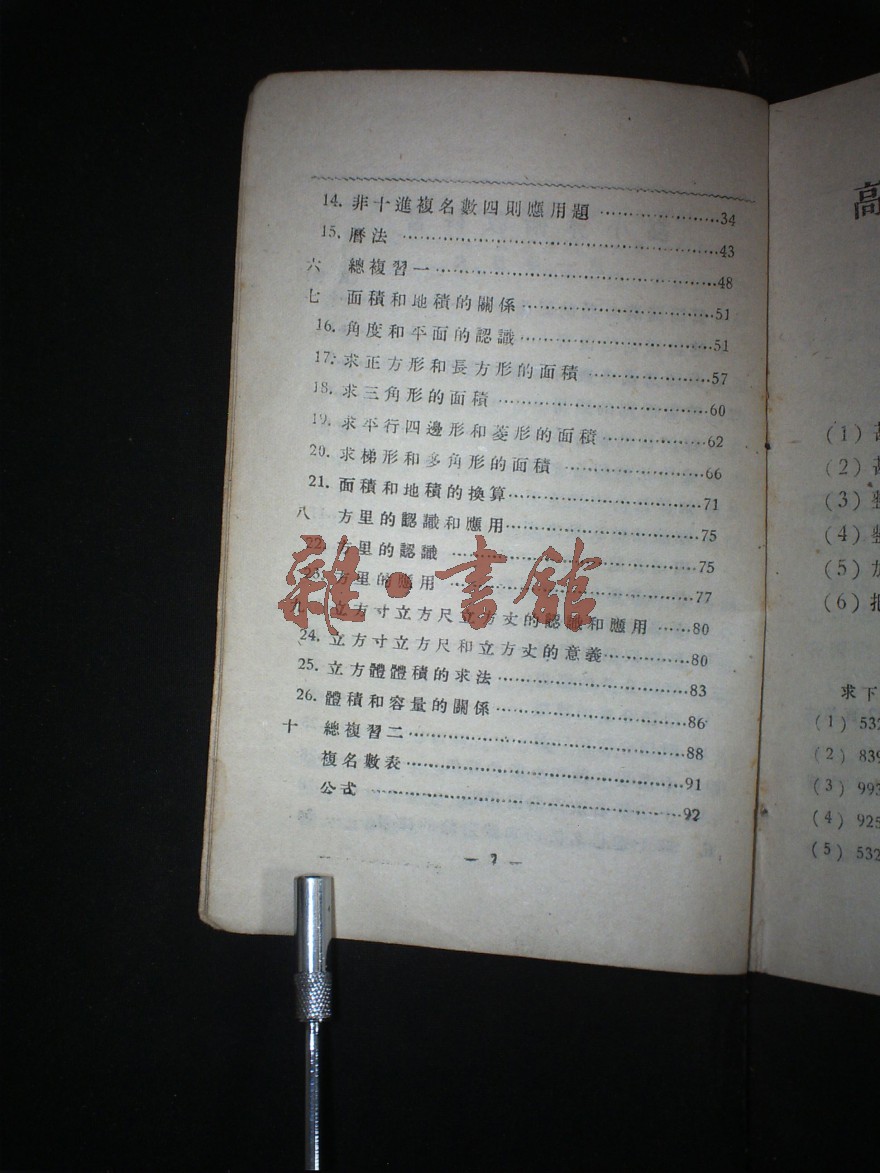 14. 非十進複名數四則應用題 ……………34
15. 曆法 ……………43
六 總複習一……………48
七 面積和地積的關係……………51
16. 角度和平面的認識……………51
17. 求正方形和長方形的面積 ……………57
18. 求三角形的面積……………60
19. 求平行四邊形和菱形的面積……………62
20. 求梯形和多角形的面積 ……………66
21. 面積和地積的換算……………71
八 方里的認識和應用……………75
22. 方里的認識 ……………75
23. 方里的應用 ……………77
九 立方寸立方尺立方丈的認識和應用 ……80
24. 立方寸立方尺和立方丈的意義……………80
25. 立方體體積的求法……………83
26. 體積和容量的關係……………86
十 總複習二……………88
複名數表……………91
公式 ……………92
雜·書館
高
(1)
(2)
(3) 整
(4) 整
(5) 加
(6) 把
求下
(1) 532
(2) 839
(3) 993
(4) 925
(5) 532